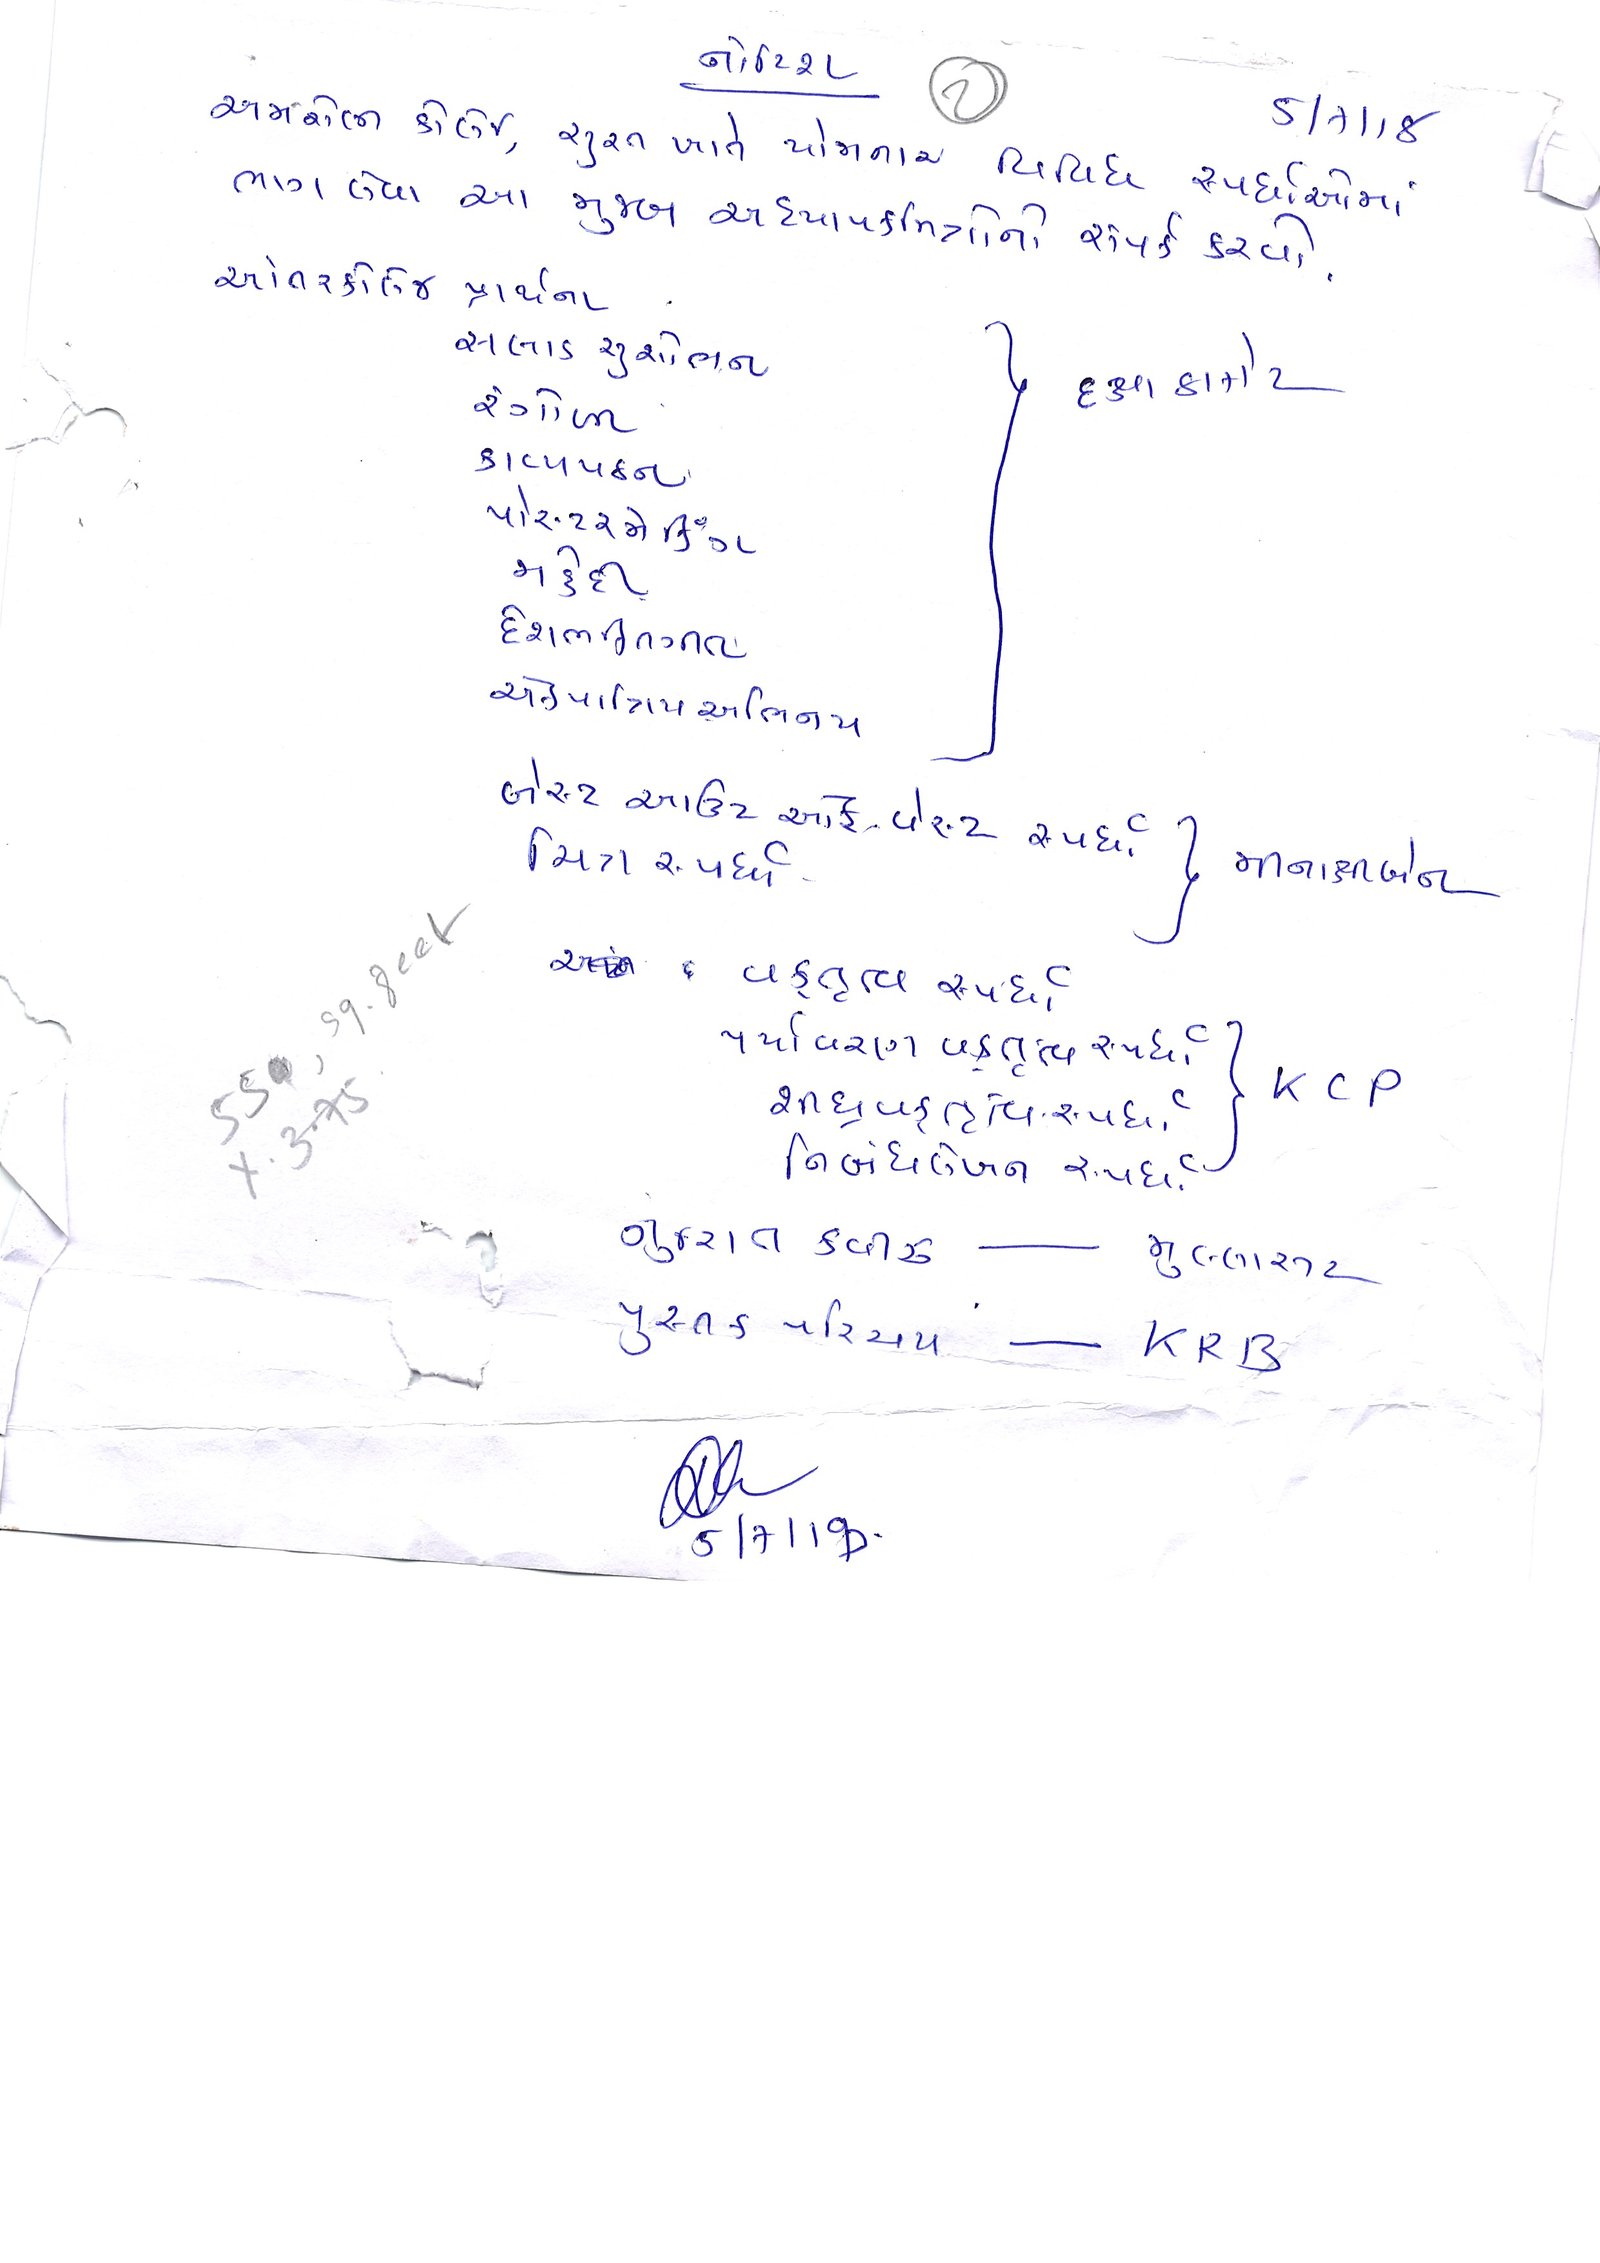 નોટિશ
2
5/7/18
અમરોલી કોલેજ, સુરત ખાતે યોજનાર વિવિધ સ્પર્ધાઓમાં
ભાગ લેવા આ મુજબ અધ્યાપકમિત્રોનો સંપર્ક કરવો.
આંતરકોલેજ પ્રાર્થના
સલાડ સુશોભન
રંગોળી
કાવ્યપઠન
પોસ્ટરમેકિંગ
મહેંદી
દેશભક્તિગીત
એકપાત્રિય અભિનય
દક્ષા
બેસ્ટ આઉટ ઓફ વેસ્ટ સ્પર્ધા
ચિત્ર સ્પર્ધા
મીનાક્ષીબેન
વક્તૃત્વ સ્પર્ધા
પર્યાવરણ વક્તૃત્વ સ્પર્ધા
શીઘ્રવક્તૃત્વ સ્પર્ધા
નિબંધલેખન સ્પર્ધા
KCP
ગુજરાત કવીઝ —
પુસ્તક પરિચય — KRB
550, sq.feet
x.3.75
5/7/18